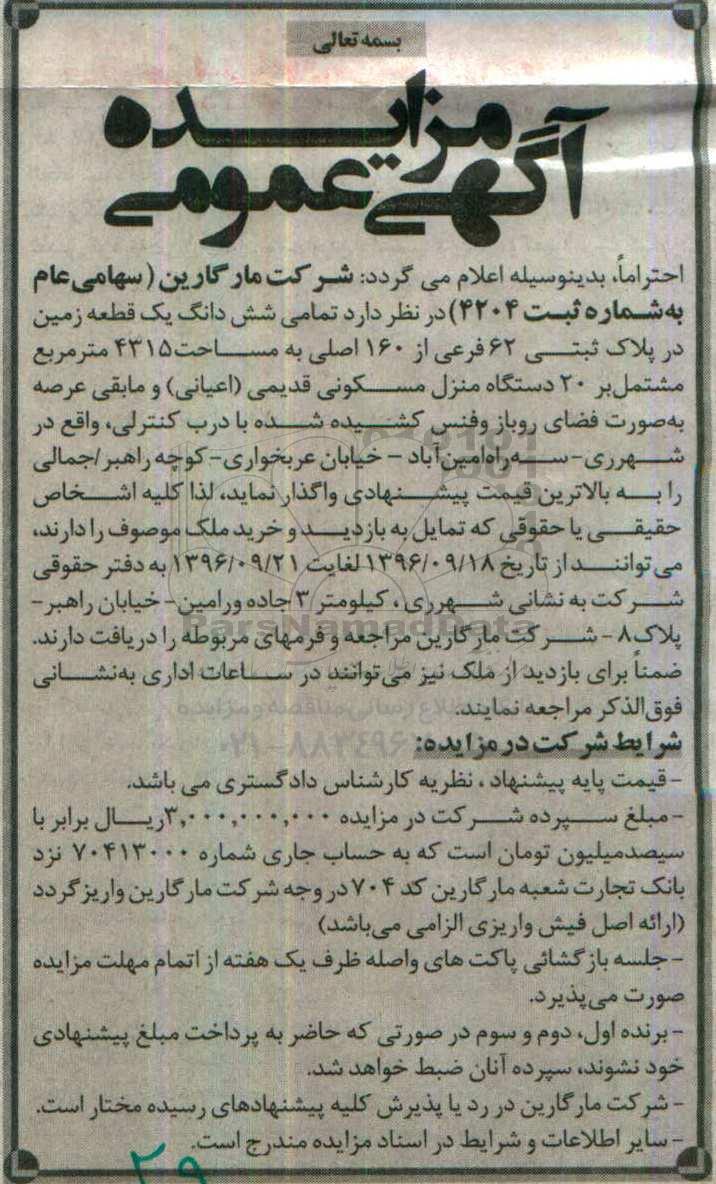 بسمه تعالی
آگهی مزایده عمومی
احتراماً، بدینوسیله اعلام می گردد: شرکت مارگارین (سهامی عام
به شماره ثبت ۴۲۰۴) در نظر دارد تمامی شش دانگ یک قطعه زمین
در پلاک ثبتی ۶۲ فرعی از ۱۶۰ اصلی به مساحت ۴۳۱۵ مترمربع
مشتمل بر ۲۰ دستگاه منزل مسکونی قدیمی (اعیانی) و مابقی عرصه
به‌صورت فضای روباز وفنس کشیده شده با درب کنترلی، واقع در
شهرری- سه‌راه‌امین‌آباد – خیابان عربخواری- کوچه راهبر/جمالی
را به بالاترین قیمت پیشنهادی واگذار نماید، لذا کلیه اشخاص
حقیقی یا حقوقی که تمایل به بازدید و خرید ملک موصوف را دارند،
می توانند از تاریخ ۱۳۹۶/۰۹/۱۸ لغایت ۱۳۹۶/۰۹/۲۱ به دفتر حقوقی
شرکت به نشانی شهرری، کیلومتر ۳ جاده ورامین- خیابان راهبر-
پلاک۸ - شرکت مارگارین مراجعه و فرمهای مربوطه را دریافت دارند.
ضمناً برای بازدید از ملک نیز می‌توانند در ساعات اداری به‌نشانی
فوق‌الذکر مراجعه نمایند.
شرایط شرکت در مزایده:
- قیمت پایه پیشنهاد ، نظریه کارشناس دادگستری می باشد.
- مبلغ سپرده شرکت در مزایده ۳,۰۰۰,۰۰۰,۰۰۰ریال برابر با
سیصدمیلیون تومان است که به حساب جاری شماره ۷۰۴۱۳۰۰۰ نزد
بانک تجارت شعبه مارگارین کد ۷۰۴ در وجه شرکت مارگارین واریز گردد
(ارائه اصل فیش واریزی الزامی می‌باشد)
- جلسه بازگشائی پاکت های واصله ظرف یک هفته از اتمام مهلت مزایده
صورت می‌پذیرد.
- برنده اول، دوم و سوم در صورتی که حاضر به پرداخت مبلغ پیشنهادی
خود نشوند، سپرده آنان ضبط خواهد شد.
- شرکت مارگارین در رد یا پذیرش کلیه پیشنهادهای رسیده مختار است.
- سایر اطلاعات و شرایط در اسناد مزایده مندرج است.
۲۹
ParsNamadData